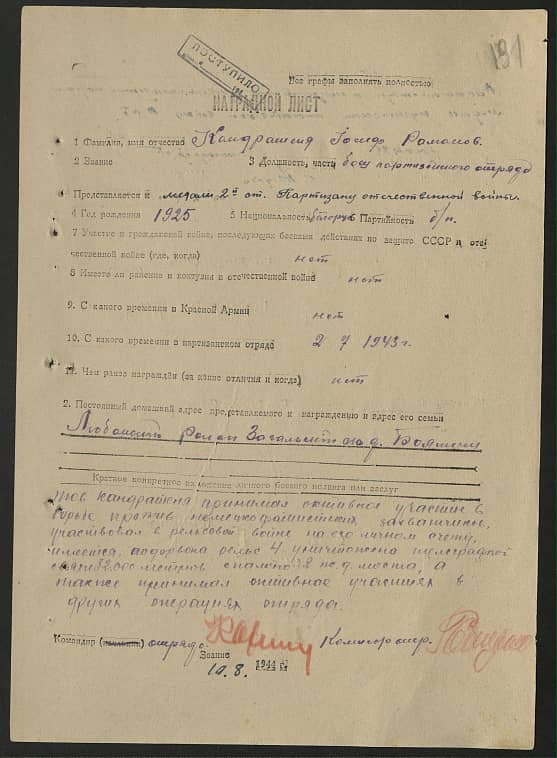 191
ПОСТУПИЛО
Все графы заполнять полностью
НАГРАДНОЙ ЛИСТ
1 Фамилия, имя отчество Кандрашеня Іосиф Раманов.
2 Звание 3 Должность, часть боец партизанского отряда
Представляется к медали 2й ст. Партизану отечественной войны.
4 Год рождения 1925 5 Национальность беларус Партийность б/п.
7 Участие в гражданской войне, последующих боевых действиях по защите СССР и оте
чественной войне (где, когда) нет
8 Имеете ли ранения и контузии в отечественной войне нет
9. С какого времени в Красной Армии нет
10. С какого времени в партизанском отряде 2 7 1943 г.
11. Чем ранее награждён (за какие отличия и когда) нет
2. Постоянный домашний адрес представляемого к награждению и адрес его семьи
район д.
Краткое конкретное изложение личного боевого подвига или заслуг
тов принимал активное участие в
борьбе против немецкофашистских захватчиков,
участвовал в рельсовой войне на его личном счету,
имеется подорвано рельс 4 уничтожена телеграфной
связи 52.000 метров спалено 2 ж.д. моста, а
также принимал активное участия в
других операциях отряда.
Командир отряда. Комиссар отр.
Звание
10.8. 1944 г.